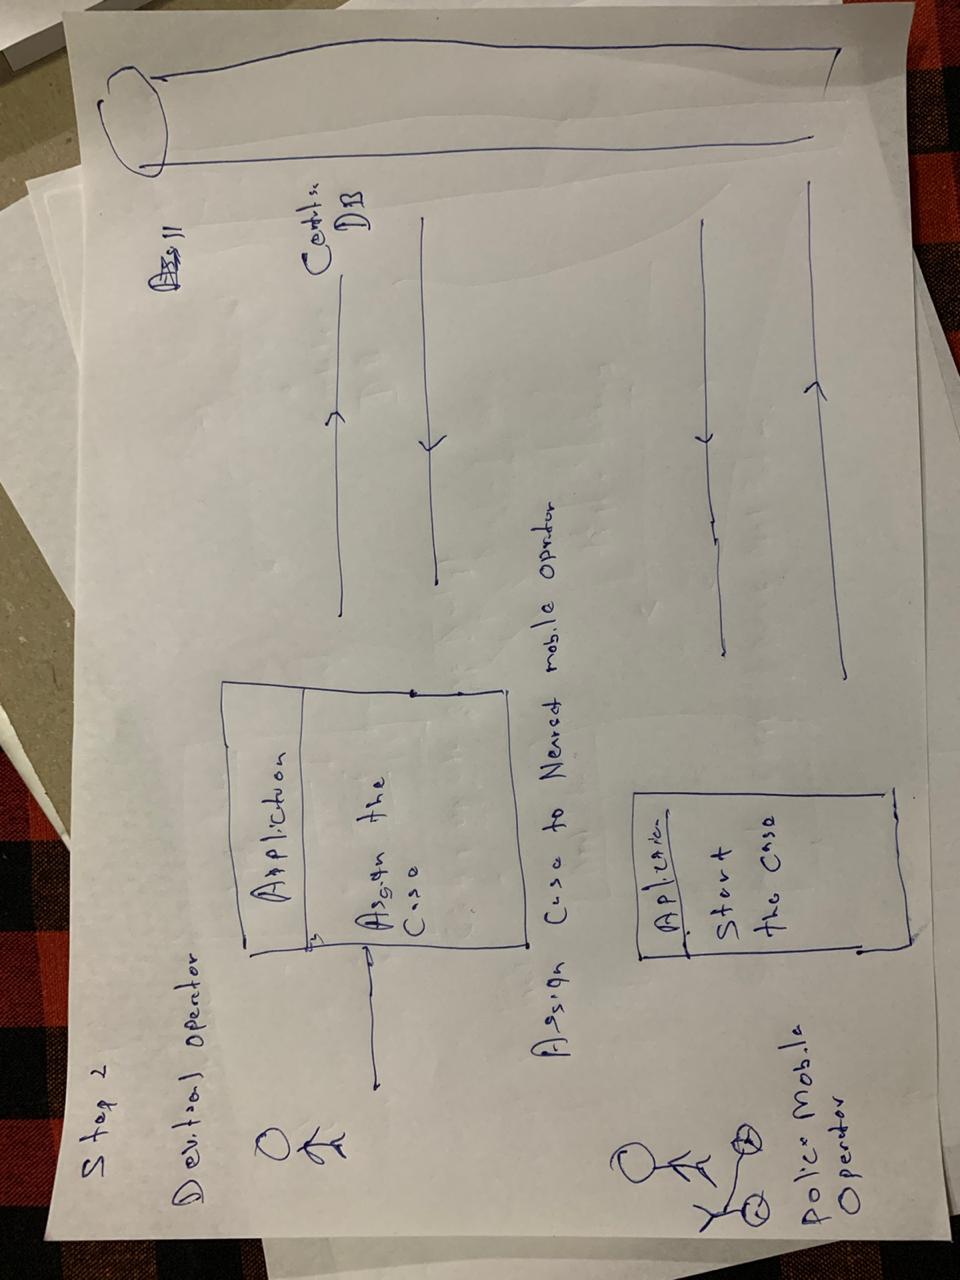 Step 2
Devitional operator
Appliction
Assign the
Case
DB
Assign Case to Nearest mobile Oprator
Start
the Case
Police Mobile
Operator